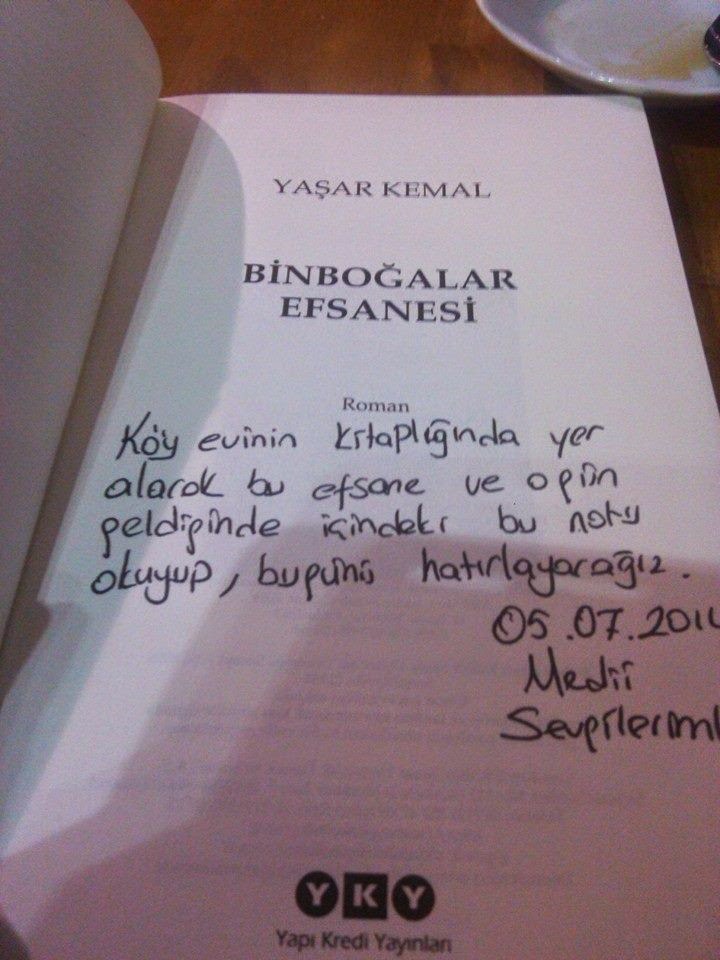 YAŞAR KEMAL
BİNBOĞALAR
EFSANESİ
Roman
Köy evinin kitaplığında yer
alacak bu efsane ve o gün
geldiğinde içindeki bu notu
okuyup, bugünü hatırlayacağız.
05.07.201
Medii
Sevgileriml
YKY
Yapı Kredi Yayınları